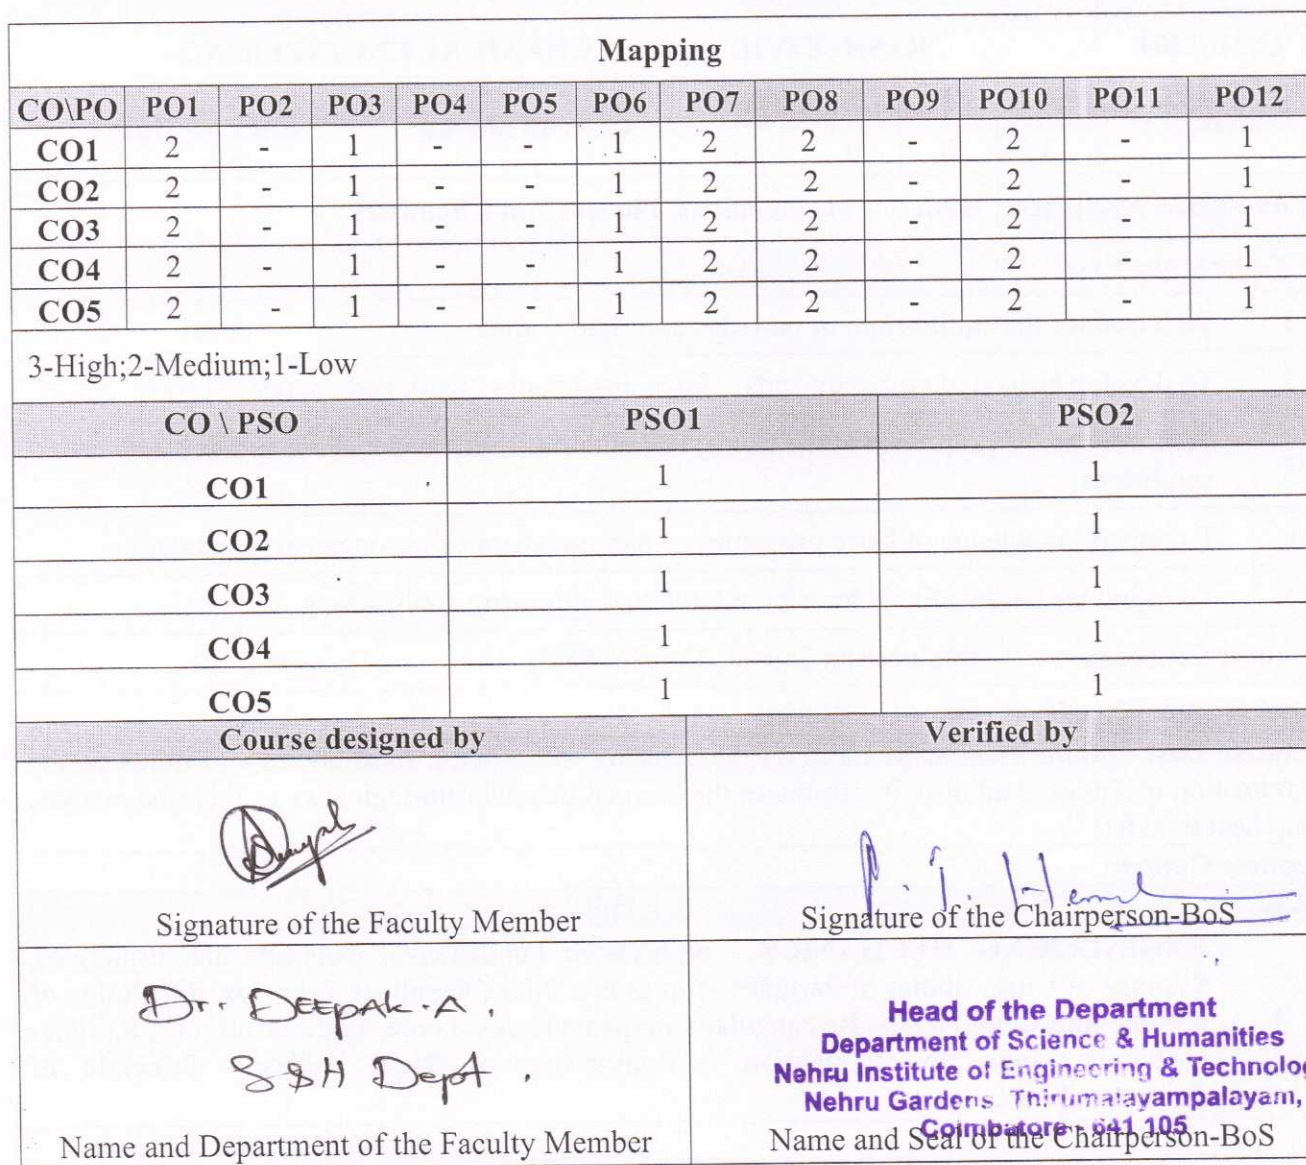 Mapping
CO\PO PO1 PO2 PO3 PO4 PO5 PO6 PO7 PO8 PO9 PO10 PO11 PO12
CO1 2 - 1 - - 1 2 2 - 2 - 1
CO2 2 - 1 - - 1 2 2 - 2 - 1
CO3 2 - 1 - - 1 2 2 - 2 - 1
CO4 2 - 1 - - 1 2 2 - 2 - 1
CO5 2 - 1 - - 1 2 2 - 2 - 1
3-High;2-Medium;1-Low
CO \ PSO PSO1 PSO2
CO1 1 1
CO2 1 1
CO3 1 1
CO4 1 1
CO5 1 1
Course designed by Verified by
Signature of the Faculty Member Signature of the Chairperson-BoS
Dr DEEPAK.A.
S&H Dept.
Head of the Department
Department of Science & Humanities
Nehru Institute of Engineering & Technolog
Nehru Gardens, Thirumalayampalayam,
Coimbatore - 641 105
Name and Department of the Faculty Member Name and Seal of the Chairperson-BoS